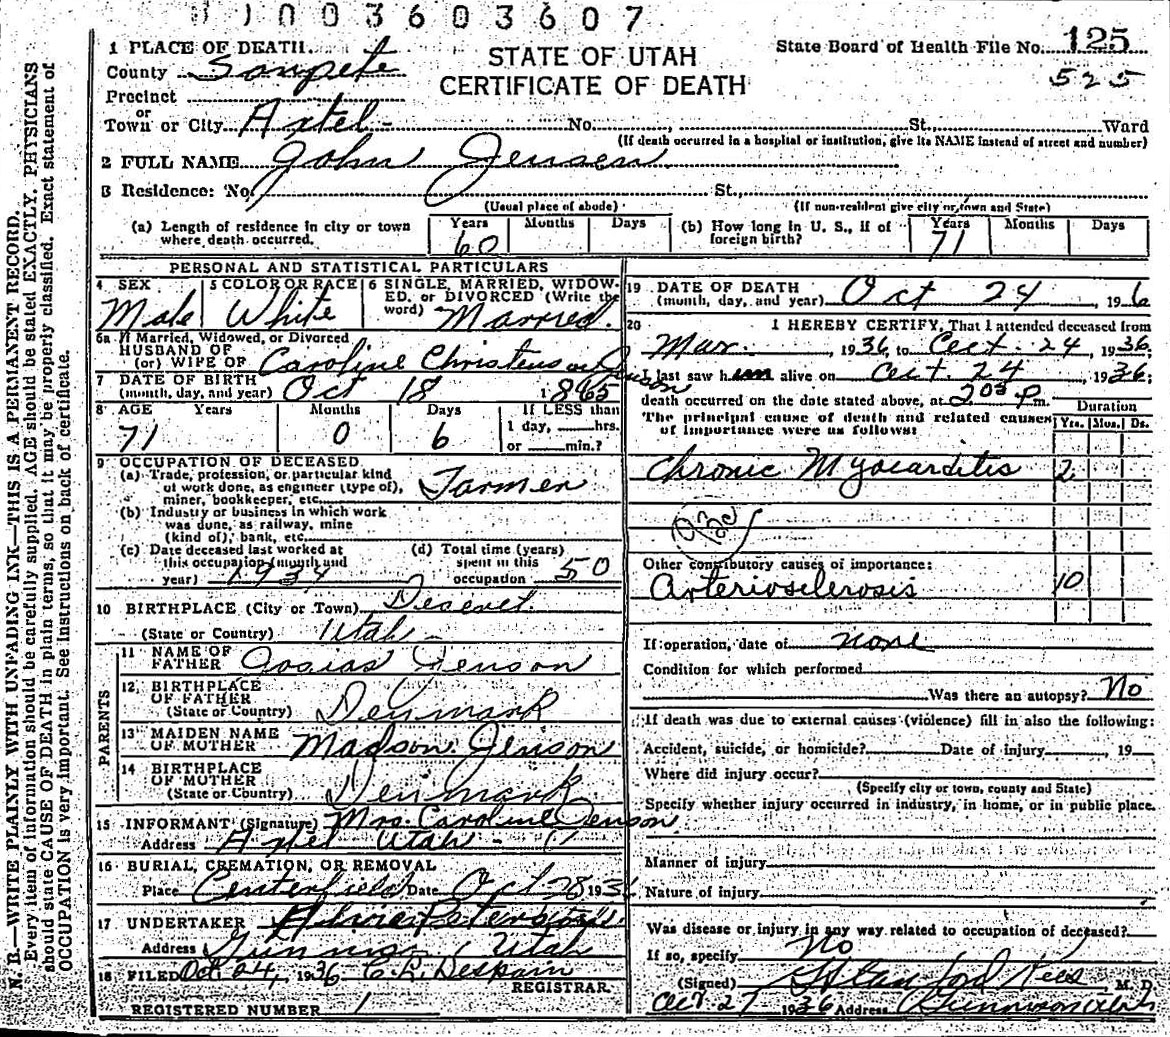 1003603607
1 PLACE OF DEATH.
STATE OF UTAH
CERTIFICATE OF DEATH
State Board of Health File No. 125
525
County Sanpete
Precinct
or
Town or City Axtel - No. , St., Ward
(If death occurred in a hospital or institution, give its NAME instead of street and number)
2 FULL NAME John Jensen
3 Residence: No. St.,
(Usual place of abode) (If non-resident give city or town and State)
(a) Length of residence in city or town where death occurred. Years 60 Months Days
(b) How long in U. S., if of foreign birth? Years 71 Months Days
PERSONAL AND STATISTICAL PARTICULARS
4 SEX Male
5 COLOR OR RACE White
6 SINGLE, MARRIED, WIDOWED, or DIVORCED (Write the word) Married.
6a If Married, Widowed, or Divorced
HUSBAND OF
(or) WIFE OF Caroline Christenson Jenson
7 DATE OF BIRTH
(month, day, and year) Oct 18 1865
8 AGE Years 71 Months 0 Days 6 If LESS than
1 day, hrs.
or min.?
9 OCCUPATION OF DECEASED
(a) Trade, profession, or particular kind
of work done, as engineer (type of),
miner, bookkeeper, etc. Farmer
(b) Industry or business in which work
was done, as railway, mine
(kind of), bank, etc.
(c) Date deceased last worked at
this occupation (month and
year) 1934
(d) Total time (years)
spent in this
occupation 50
10 BIRTHPLACE (City or Town) Deseret
(State or Country) Utah -
PARENTS
11 NAME OF
FATHER Josias Jenson
12 BIRTHPLACE
OF FATHER
(State or Country) Denmark
13 MAIDEN NAME
OF MOTHER Madson Jenson
14 BIRTHPLACE
OF MOTHER
(State or Country) Denmark
15 INFORMANT (Signature) Mrs. Caroline Jenson
Address Axtel Utah -
16 BURIAL, CREMATION, OR REMOVAL
Place Centerfield Date Oct 28 1936
17 UNDERTAKER
Address Gunnison, Utah
18 FILED Oct 24, 1936
REGISTRAR.
REGISTERED NUMBER 1
19 DATE OF DEATH
(month, day, and year) Oct 24 1936
20 I HEREBY CERTIFY, That I attended deceased from
Mar. , 1936, to Oct. 24 , 1936;
I last saw him alive on Oct. 24 , 1936;
death occurred on the date stated above, at 2 03 P.m.
The principal cause of death and related causes
of importance were as follows:
Duration
Yrs. Mos. Ds.
Chronic Myocarditis 2
Other contributory causes of importance:
Arteriosclerosis 10
If operation, date of none
Condition for which performed
Was there an autopsy? No
If death was due to external causes (violence) fill in also the following:
Accident, suicide, or homicide? Date of injury , 19
Where did injury occur?
(Specify city or town, county and State)
Specify whether injury occurred in industry, in home, or in public place.
Manner of injury
Nature of injury
Was disease or injury in any way related to occupation of deceased?
If so, specify No
(Signed) Stanford Rees M. D.
Oct 27 1936 Address Gunnison Utah
N. B.—WRITE PLAINLY WITH UNFADING INK—THIS IS A PERMANENT RECORD.
Every item of information should be carefully supplied. AGE should be stated EXACTLY. PHYSICIANS
should state CAUSE OF DEATH in plain terms, so that it may be properly classified. Exact statement of
OCCUPATION is very important. See instructions on back of certificate.